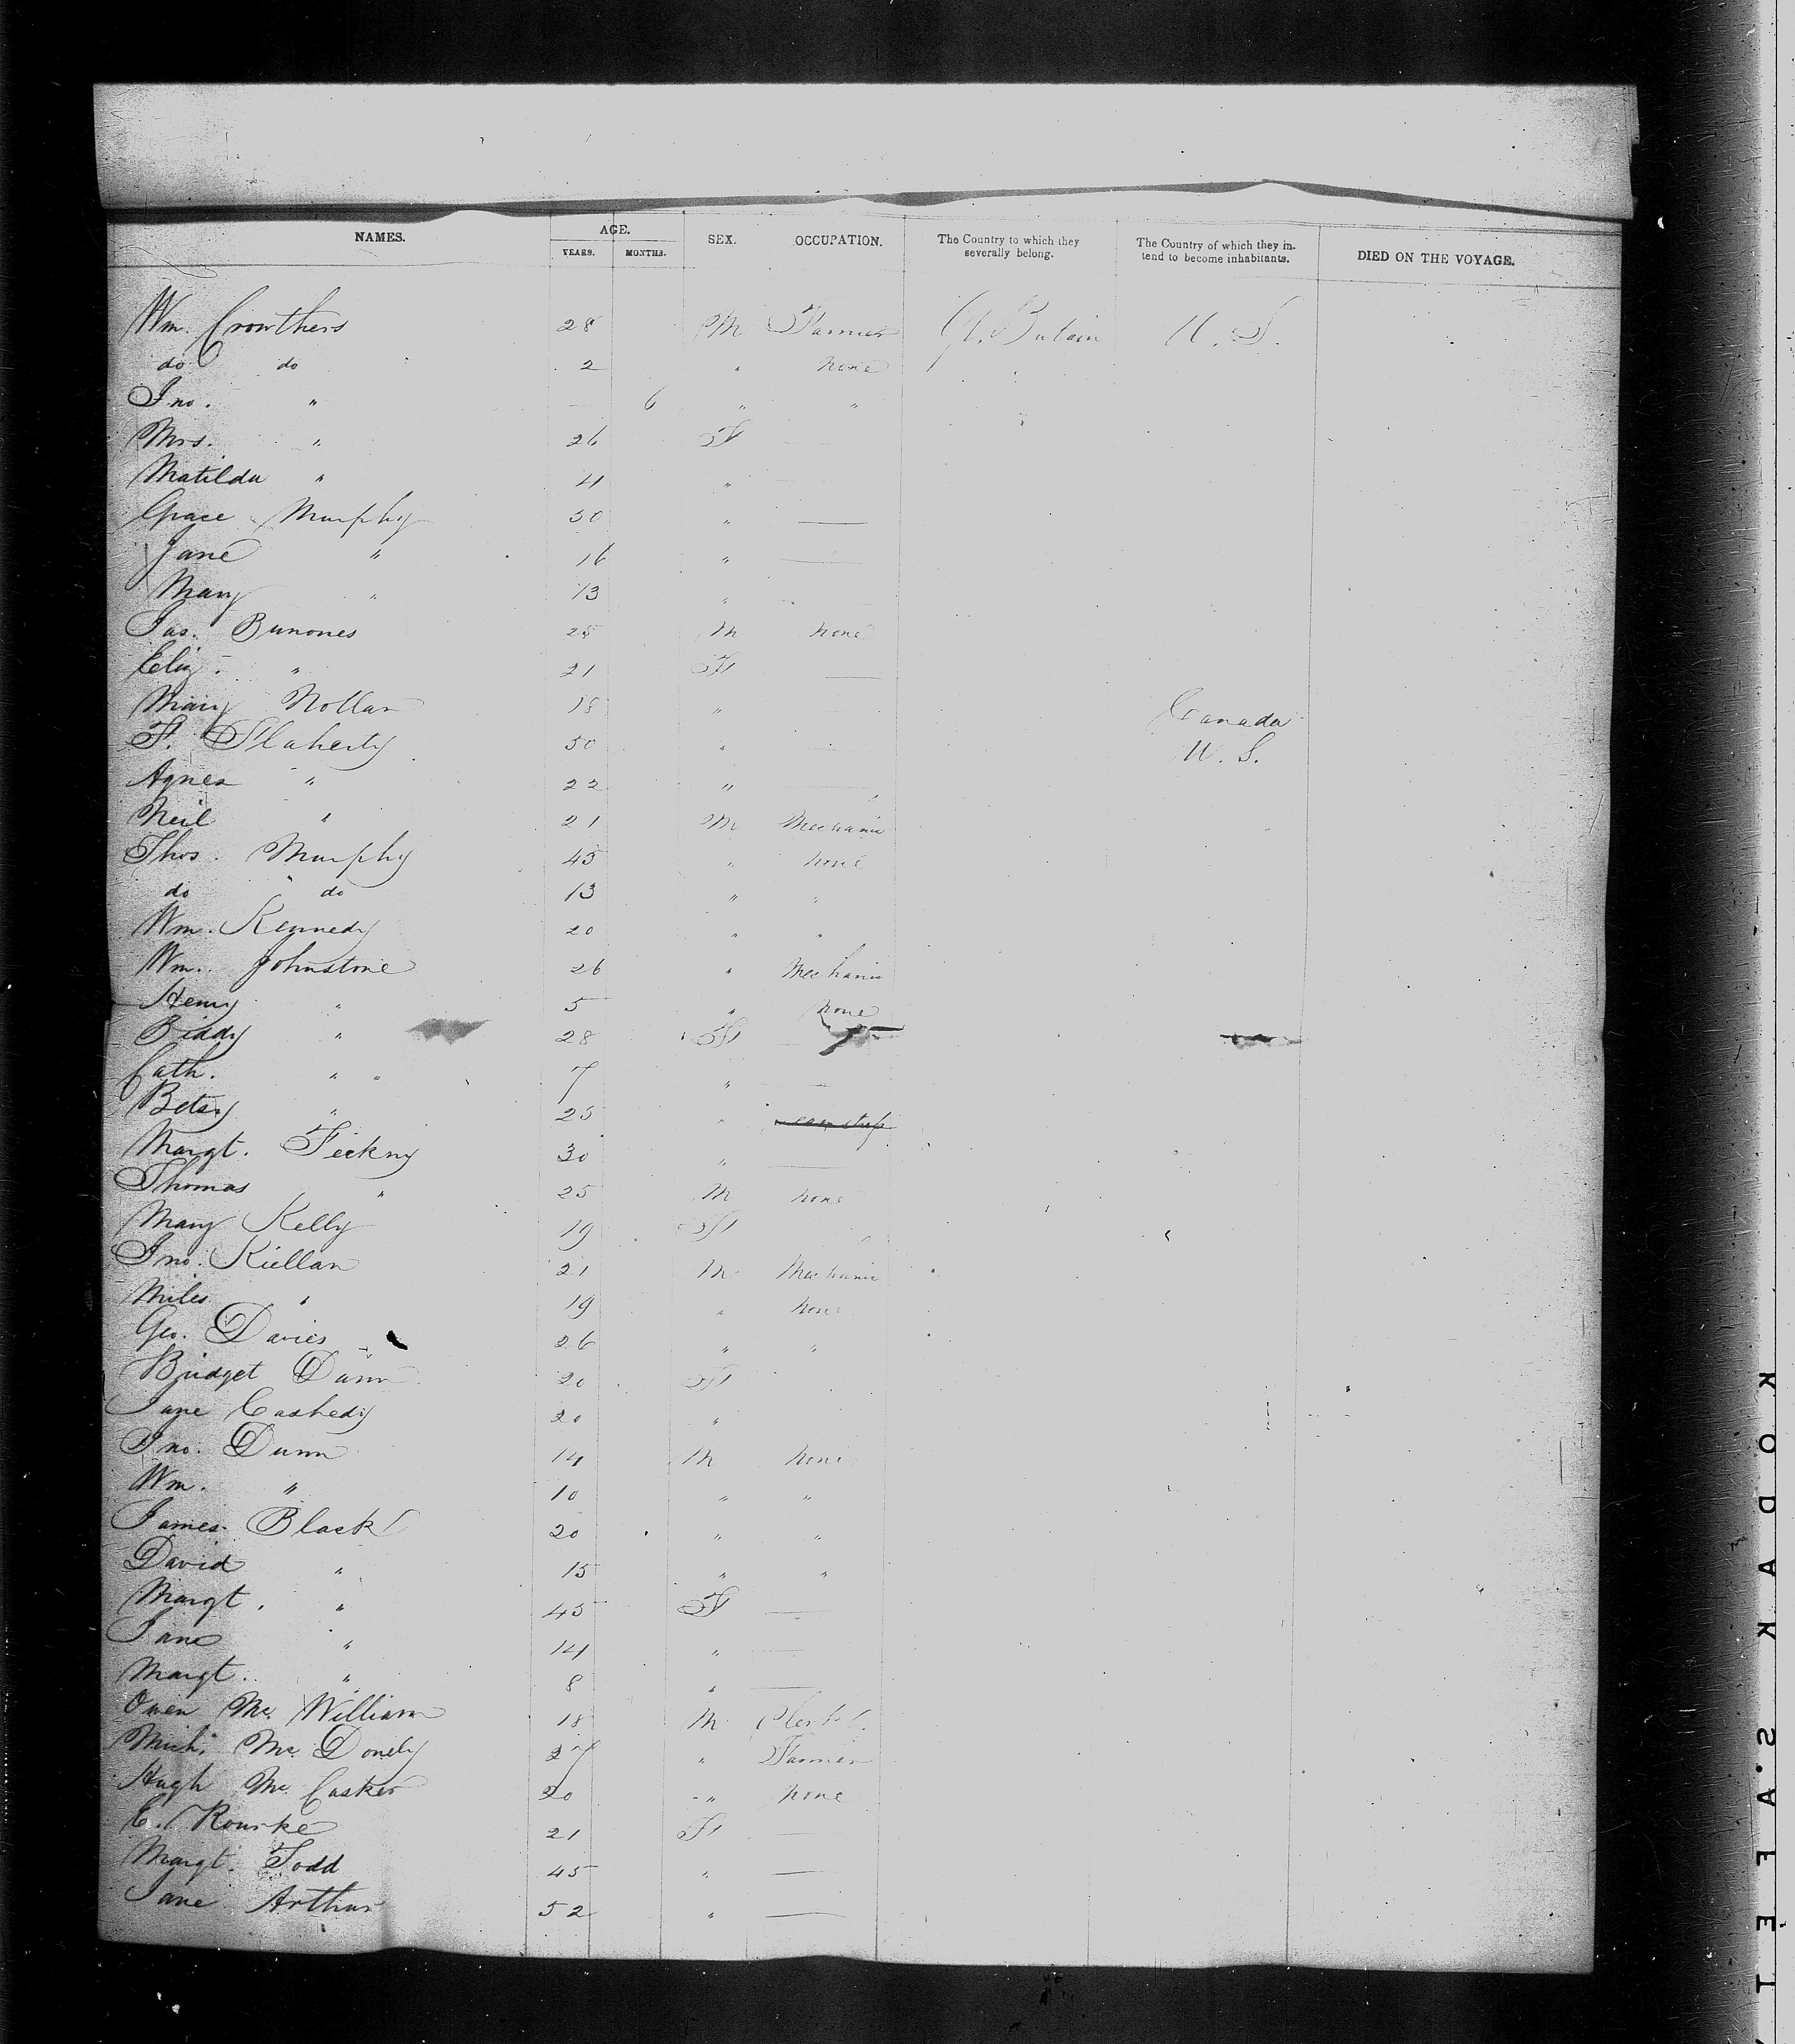 NAMES. AGE. SEX. OCCUPATION. The Country to which they severally belong. The Country of which they intend to become inhabitants. DIED ON THE VOYAGE.
YEARS. MONTHS.
Wm. Crowthers 28 M Farmer Gt. Britain U. S.
do do 2 " none
Jno. " — 6 " "
Mrs. " 26 F —
Matilda " 4 "
Grace Murphy 50 " —
Jane " 16 " —
Mary " 13 "
Jas. Bunones 25 M none
Eliz. " 21 F —
Mary Nollan 18 " Canada
F. Flaherty 50 " — U. S.
Agnes " 22 " —
Neil " 21 M Mechanic
Thos. Murphy 45 " none
do " do 13 " "
Wm. Kennedy 20 " "
Wm. Johnstone 26 " Mechanic
Henry " 5 " none
Biddy " 28 F —
Cath. " " 7 " —
Betsy " 25 "
Margt. Feekny 30 " —
Thomas " 25 M none
Mary Kelly 19 F "
Jno. Kiellan 21 M Mechanic
Miles " 19 " none
Geo. Davies 26 " "
Bridget Dunn 20 F
Jane Cashedy 20 "
Jno. Dunn 14 M none
Wm. " 10 " "
James Black 20 " "
David " 15 " "
Margt. " 45 F —
Jane " 14 " —
Margt. " 8 " —
Owen Mc. William 18 M Clerk
Mich. Mc. Donely 27 " Farmer
Hugh Mc. Casker 20 " none
C. Rourke 21 F —
Margt. Todd 45 " —
Jane Arthur 52 " —
KODAK S.A.F.E.T